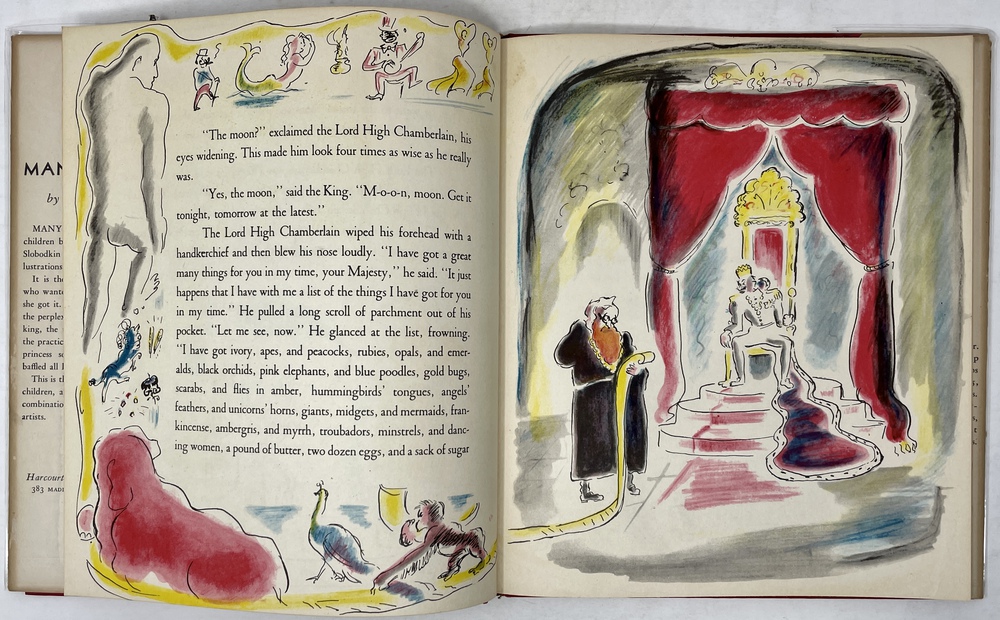 MAN
by
MANY
children b
Slobodkin
lustrations
It is the
who wante
she got it.
the perplex
king, the
the practic
princess so
baffled all l
This is th
children, a
combinatio
artists.
Harcourt
383 MADI
"The moon?" exclaimed the Lord High Chamberlain, his
eyes widening. This made him look four times as wise as he really
was.
"Yes, the moon," said the King. "M-o-o-n, moon. Get it
tonight, tomorrow at the latest."
The Lord High Chamberlain wiped his forehead with a
handkerchief and then blew his nose loudly. "I have got a great
many things for you in my time, your Majesty," he said. "It just
happens that I have with me a list of the things I have got for you
in my time." He pulled a long scroll of parchment out of his
pocket. "Let me see, now." He glanced at the list, frowning.
"I have got ivory, apes, and peacocks, rubies, opals, and emer-
alds, black orchids, pink elephants, and blue poodles, gold bugs,
scarabs, and flies in amber, hummingbirds' tongues, angels'
feathers, and unicorns' horns, giants, midgets, and mermaids, fran-
kincense, ambergris, and myrrh, troubadors, minstrels, and danc-
ing women, a pound of butter, two dozen eggs, and a sack of sugar